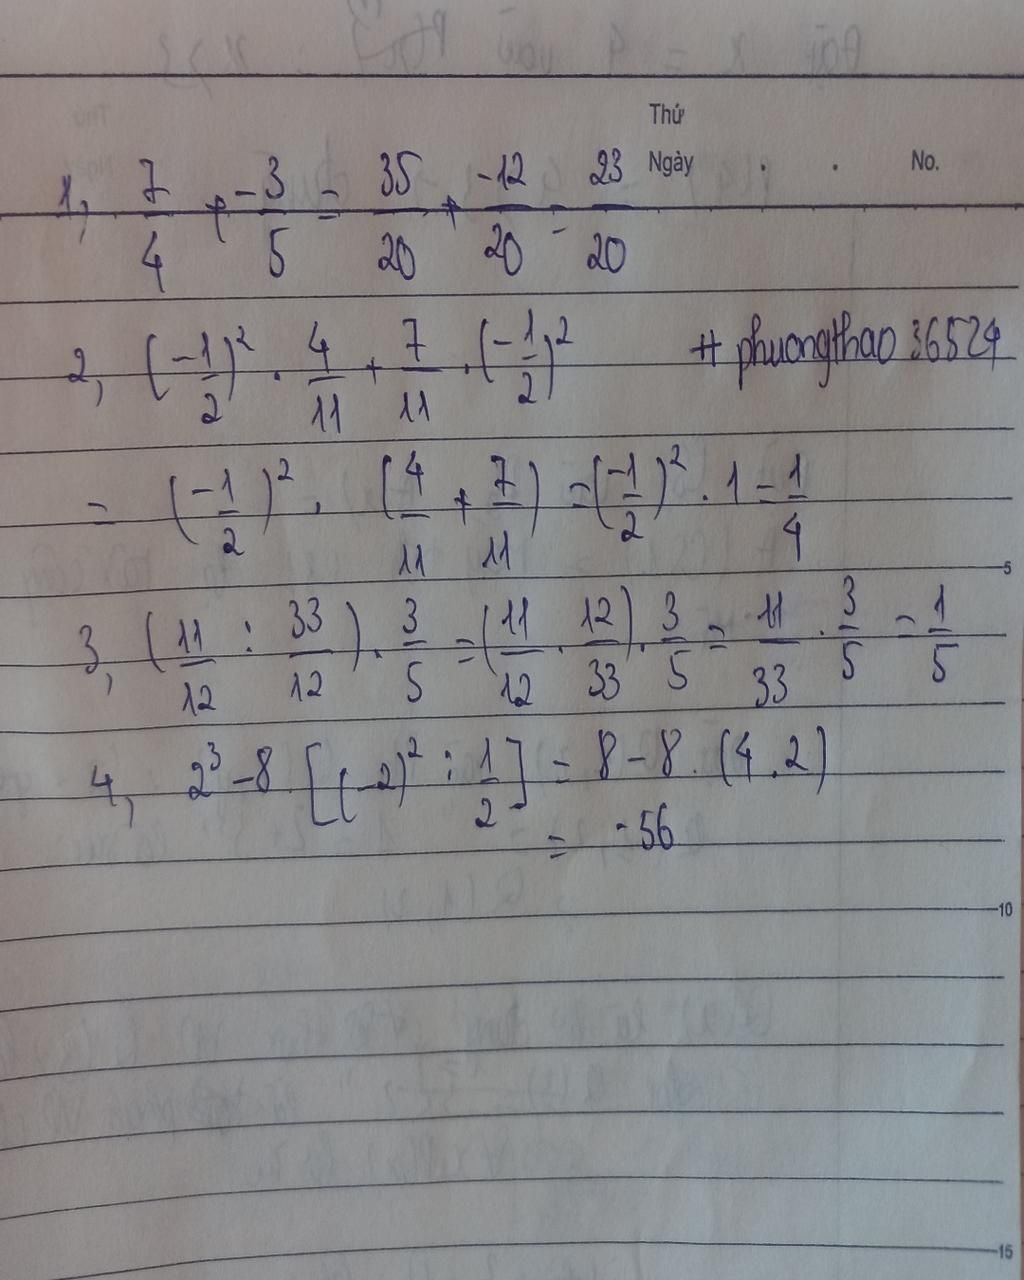 Thứ
Ngày . . No.
1, 7/4 + -3/5 = 35/20 + -12/20 = 23/20
2, (-1/2)² . 4/11 + 7/11 . (-1/2)² # phuongthao 36524
= (-1/2)² . (4/11 + 7/11) = (-1/2)² . 1 = 1/4
5
3, (11/12 : 33/12) . 3/5 = (11/12 . 12/33) . 3/5 = 11/33 . 3/5 = 1/5
4, 2³ - 8 . [(-2)² : 1/2] = 8 - 8 . (4 . 2)
= -56
10
15